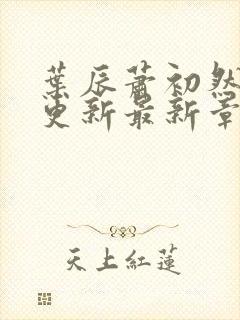 葉辰蕭初然
更新最新章
天上紅蓮